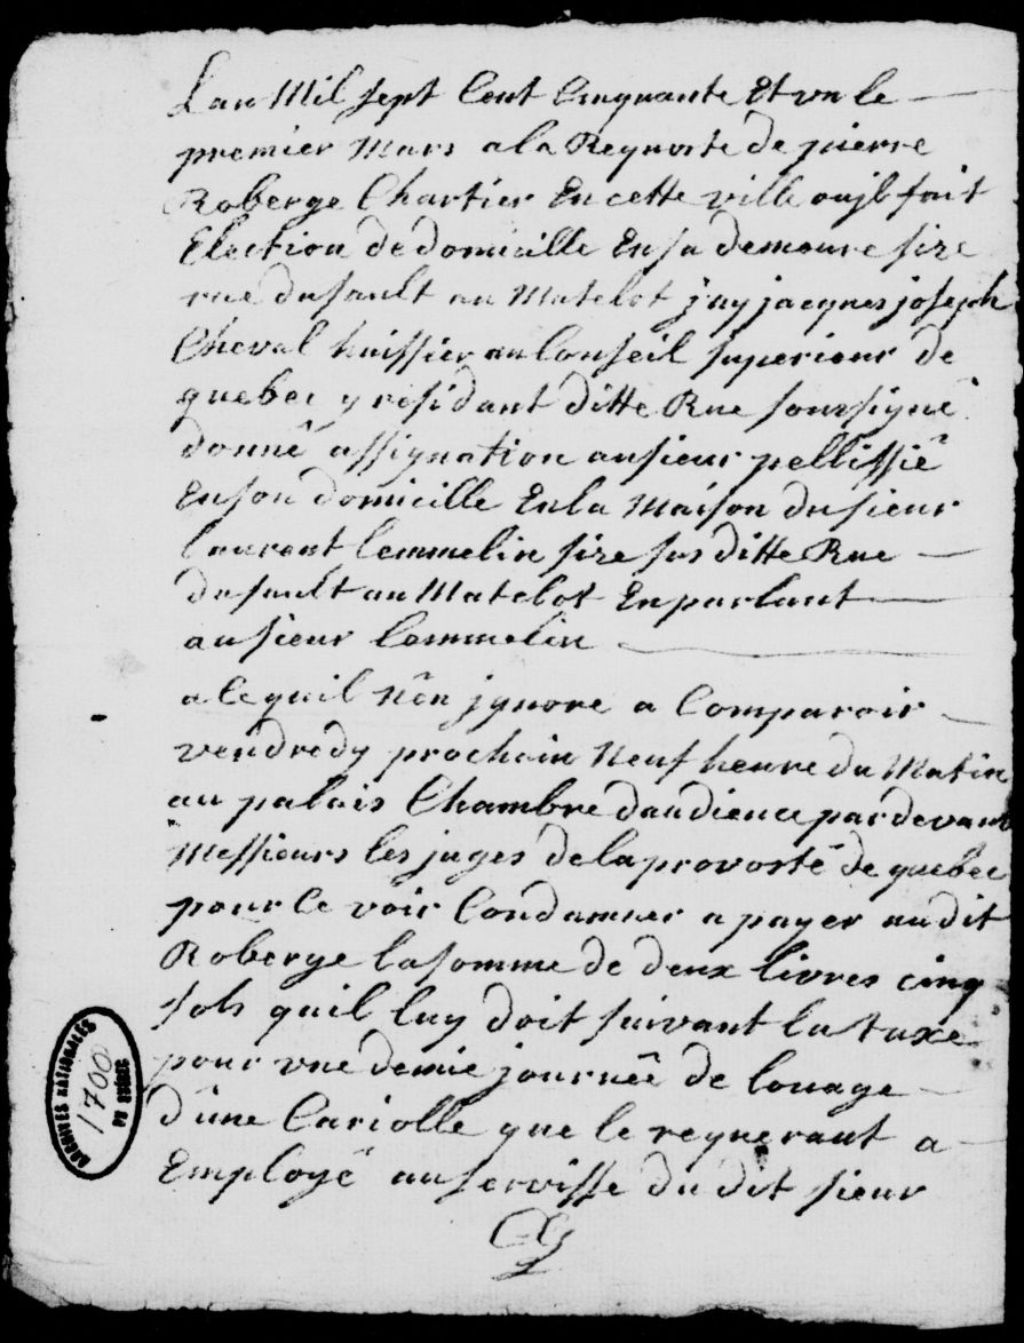 Lan Mil sept Cent Cinquante Et vn le
premier Mars a la Requeste de pierre
Roberge Chartier En cette ville oujl fait
Election de domicille En sa demeure size
rue du sault au Matelot j'ay jacques joseph
Cheval huissier au Conseil superieur de
quebec y residant ditte Rue soussigné
donné assignation au sieur pellissié
En son domicille En la Maison du sieur
laurent lemmelin size sus ditte Rue
du sault au Matelot En parlant
au sieur lemmelin
a Ce quil Nên jgnore a Comparoir
vendredy prochain Neuf heure du Matin
au palais Chambre daudience par devant
Messieurs les juges de la provosté de quebec
pour Ce voir Condamner a payer au dit
Roberge la somme de deux livres cinq
sols quil luy doit suivant la taxe
pour vne demie journéé de louage
d'une Cariolle que le requerant a
Employé au servisse du dit sieur
ARCHIVES NATIONALES
1700